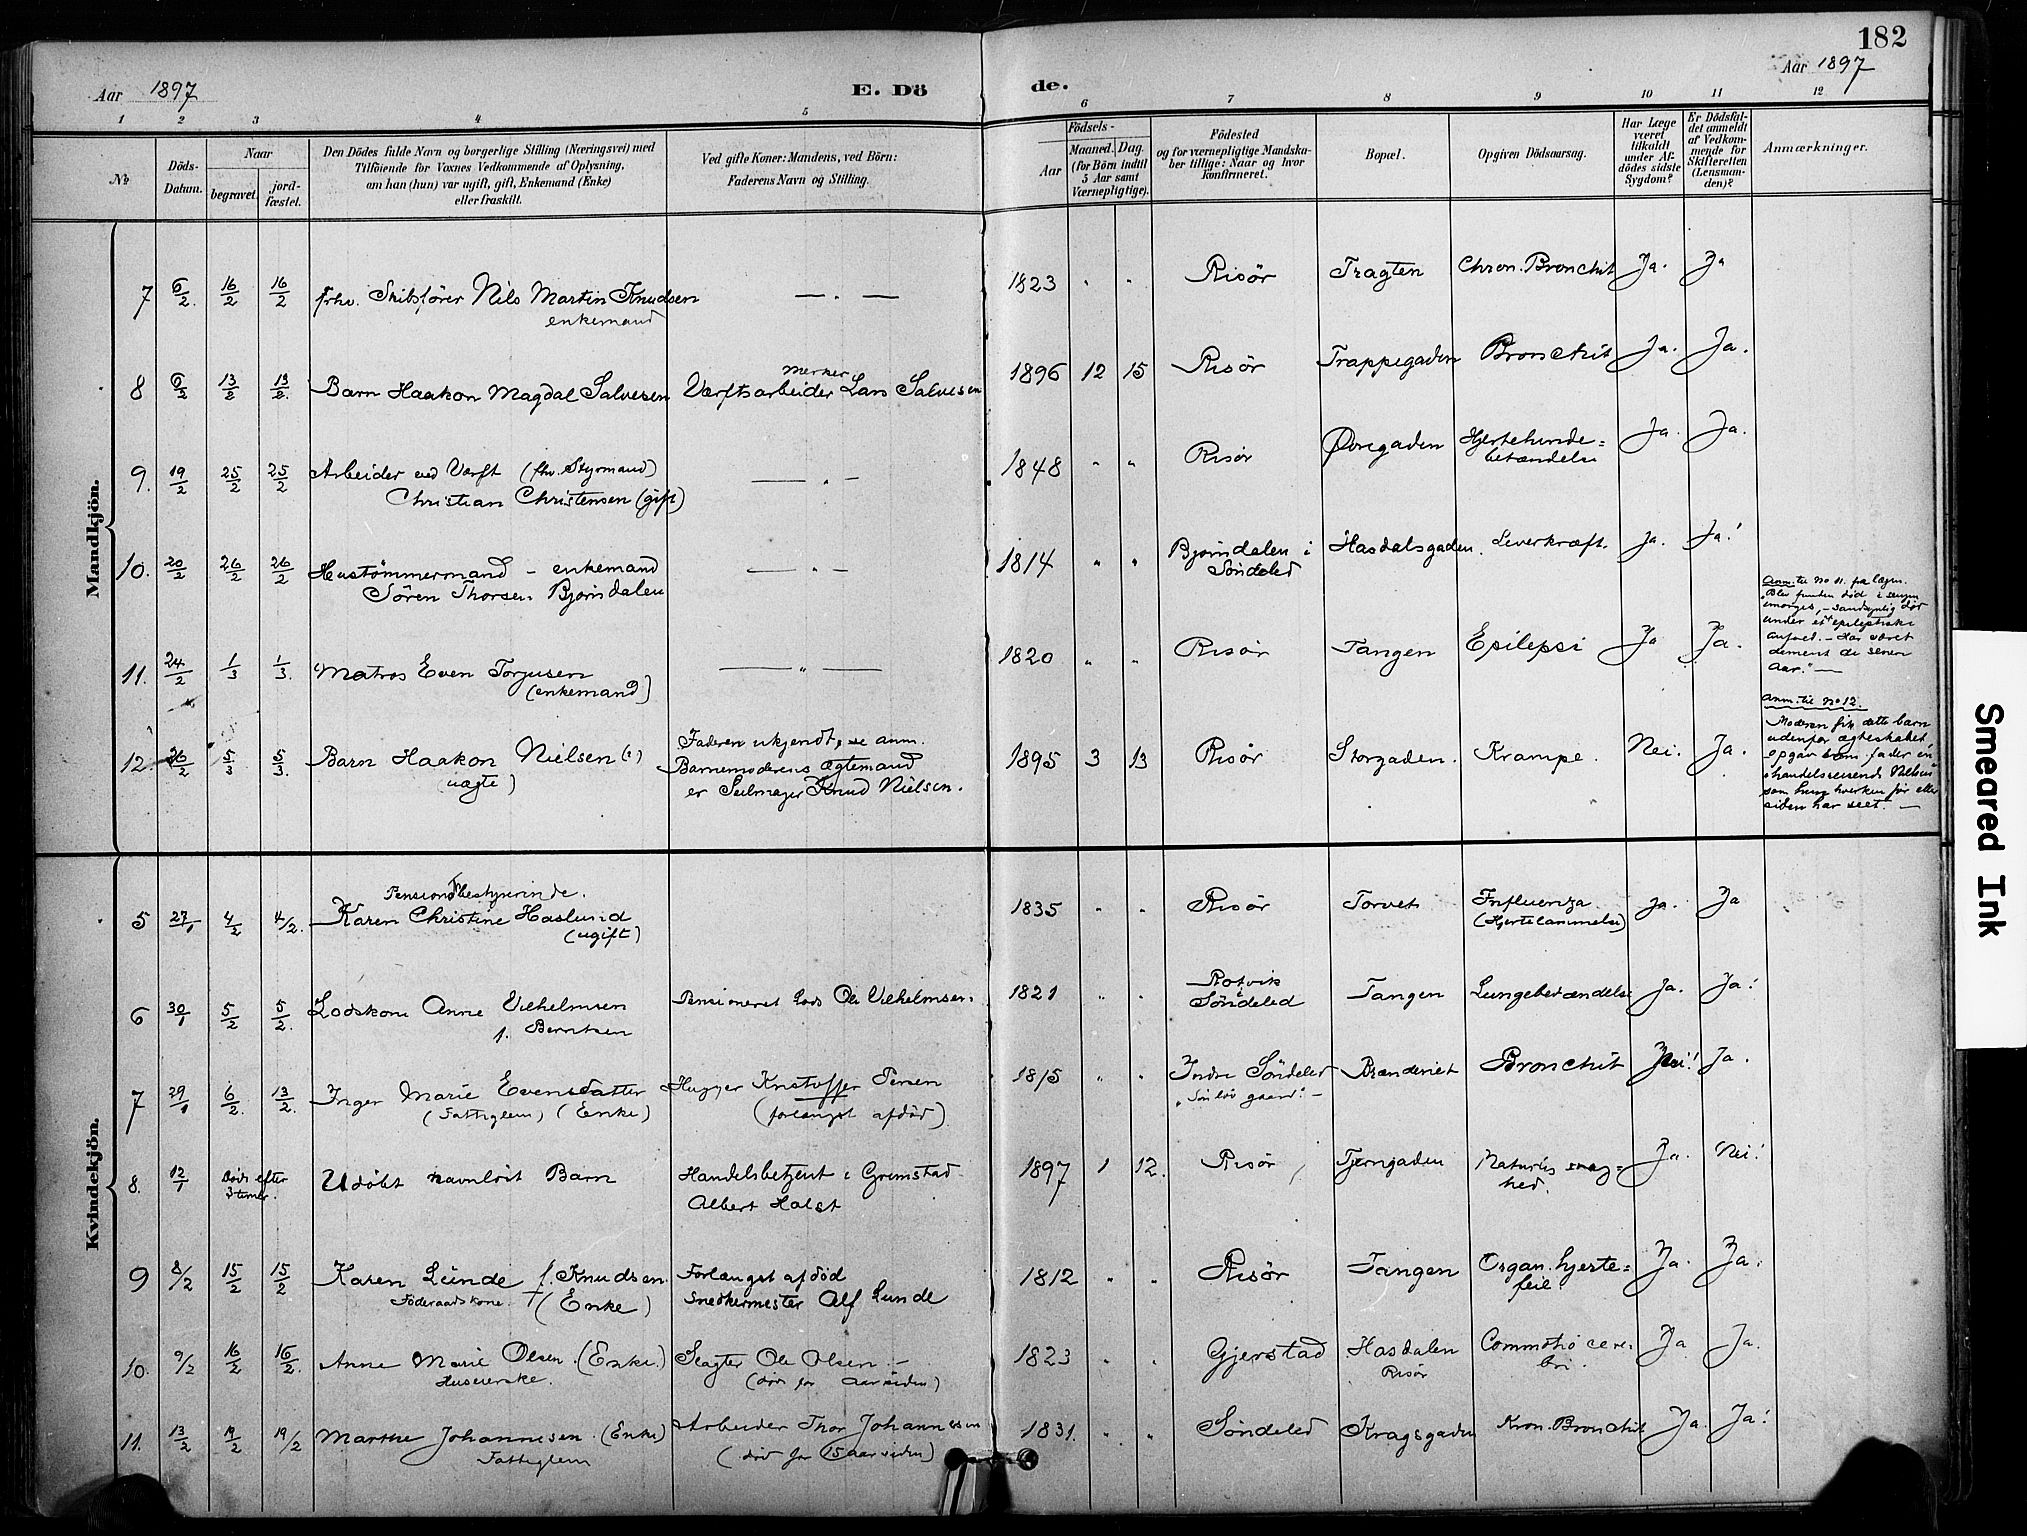 182
Aar 1897
E. Dö
de.
Aar 1897
1 2 3 4 5 6 7 8 9 10 11 12
No
Döds-
Datum.
Naar
begravet.
jord-
fæstet.
Den Dödes fulde Navn og borgerlige Stilling (Næringsvei) med
Tilföiende for Voxnes Vedkommende af Oplysning,
om han (hun) var ugift, gift, Enkemand (Enke)
eller fraskilt.
Ved gifte Koner: Mandens, ved Börn:
Faderens Navn og Stilling.
Födsels-
Aar
Maaned. Dag.
(for Börn indtil
5 Aar samt
Værnepligtige).
Födested
og for værnepligtige Mandska-
ber tillige: Naar og hvor
konfirmeret.
Bopæl.
Opgiven Dödsaarsag.
Har Læge
været
tilkaldt
under Af-
dödes sidste
Sygdom?
Er Dödsfal-
det anmeldt
af Vedkom-
mende for
Skifteretten
(Lensman-
den)?
Anmærkninger.
Mandkjön.
7 6/2. 16/2 16/2 frhv. Skibsfører Nils Martin Knudsen — " — 1823 " " Risör Tragten Chron. Bronchit Ja. Ja
enkemand
8 6/2 13/2 13/2. Barn Haakon Magdal Salvesen Værftsarbeider Lars Salvesen 1896 12 15 Risör Trappegaden Bronchit Ja. Ja.
9. 19/2 25/2 25/2 Arbeider ved Værft (fhv. Styrmand) — " — 1848 " " Risör Øvregaden Hjertehinde= Ja. Ja.
Christian Christensen (gift)
betændelse
10. 20/2 26/2 26/2 Hustømmermand - enkemand — " — 1814 " " Bjørndalen i Hasdalsgaden. Leverkræft. Ja. Ja!
Sören Thorsen Bjørndalen
Söndeled
11. 24/2 1/3 1/3. Matros Even Torjusen — " — 1820 " " Risör Tangen Epilepsi Ja Ja.
(enkemand)
Anm. til No 11. fra lægen.
"Blev funden død i sengen
imorges, - sandsynlig død
under et epileptiske
anfald. - Har været
dement de senere
Aar." —
12. 26/2 5/3 5/3. Barn Haakon Nielsen (:) Faderen ukjendt, se anm. 1895 3 13 Risör Storgaden. Krampe. Nei. Ja.
(uægte)
Barnemoderens ægtemand
er Seilmager Knud Nielsen.
Anm. til No 12.
Moderen fik dette barn
udenfor ægteskabet
opgav som fader en
handelsreisende Nielsen
som hun hverken før eller
siden har seet. —
Kvindekjön.
Pensionsbestyrerinde.
5 27/1 4/2 4/2. Karen Christine Haslund 1835 " " Risör Torvet Influenza Ja. Ja
(ugift)
(Hjertelammelse)
6 30/1 5/2 5/2. Lodskone Anne Vilhelmsen Pensioneret Lods Ole Vilhelmsen. 1821 " " Rotvik Tangen Lungebetændelse Ja. Ja!
f. Berntsen
Söndeled
7 29/1 6/2. 13/2. Inger Marie Evensdatter Hugger Kristoffer Persen 1815 " " Indre Söndeled Brænderiet Bronchit Nei! Ja.
(Fattiglem) (Enke)
(forlængst afdöd)
8. 12/1 Døde efter Udöbt navnlöst Barn Handelsbetjent i Grimstad 1897 1 12. Risör Tjerngaden Naturlig svag= Ja. Nei!
3 timer.
Albert Holst
hed.
9 8/2 15/2 15/2 Karen Lunde f. Knudsen Forlængst afdöd 1812 " " Risör Tangen Organ. hjerte= Ja. Ja.
Föderaadskone. (Enke)
Snedkermester Alf Lunde
feil
10. 9/2 16/2 16/2. Anne Marie Olsen. (Enke.) Slagter Ole Olsen - 1823 " " Gjerstad Hasdalen Commotio cere- Ja Ja.
Huseierske.
Risör
bri.
11. 13/2 19/2 19/2 Marthe Johannesen. (Enke) Arbeider Thor Johannesen 1831. " " Söndeled Kragsgaden Kron. Bronchit Ja. Ja!
Fattiglem
(död for 15 aar siden)
Smeared Ink